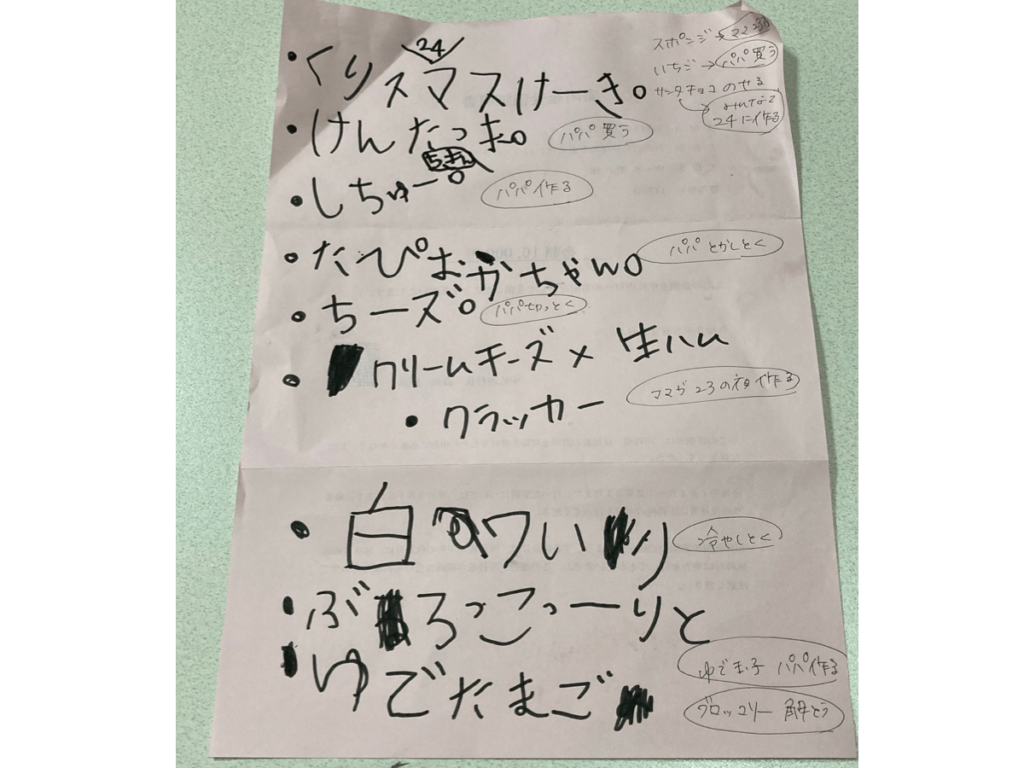 24
・くりスマスけーき。
スポンジ→ママ
いちご→パパ買う
サンタチョコのせる
みんなで
24に作る
・けんたっきー。
パパ買う
ちきん
・しちゅー。
パパ作る
・たぴおかちゃん。
パパとかしとく
・ちーズ。
パパ切っとく
・クリームチーズ×生ハム
・クラッカー
ママが23のネタ作る
・白ワいり
冷やしとく
・ぶろっこっーりと
・ゆでたまご
ゆで玉子 パパ作る
ブロッコリー 解とう